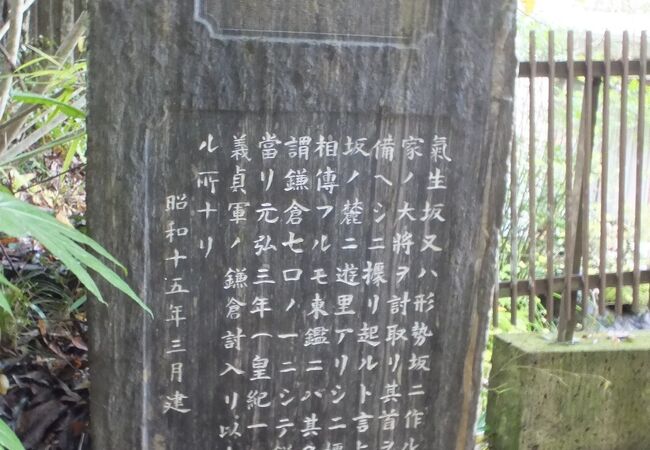 氣生坂又ハ形勢坂ニ作ル
家ノ大將ヲ討取リ其首ヲ
備ヘシニ據リ起ルト言
坂ノ麓ニ遊里アリシニ
相傳フルモ東鑑ニハ其
謂鎌倉七口ノ一ニシテ
當リ元弘三年（皇紀一
義貞軍ノ鎌倉討入リ以
ル所ナリ
昭和十五年三月建